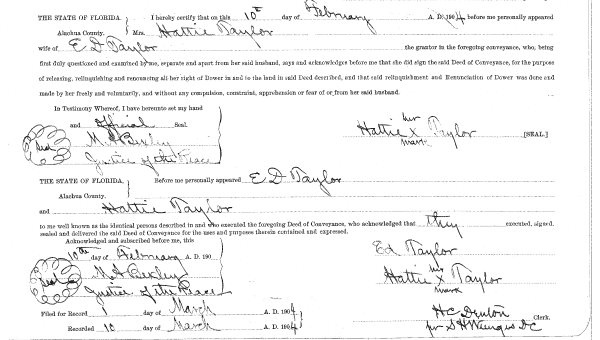 THE STATE OF FLORIDA. I hereby certify that on this 10th day of February A. D. 1904 before me personally appeared
Alachua County. Mrs. Hattie Taylor
wife of E D Taylor the grantor in the foregoing conveyance, who, being
first duly questioned and examined by me, separate and apart from her said husband, says and acknowledges before me that she did sign the said Deed of Conveyance, for the purpose
of releasing, relinquishing and renouncing all her right of Dower in and to the land in said Deed described, and that said relinquishment and Renunciation of Dower was done and
made by her freely and voluntarily, and without any compulsion, constraint, apprehension or fear of or from her said husband.
In Testimony Whereof, I have hereunto set my hand
and official Seal.
her
Hattie x Taylor [SEAL.]
mark
Seal
Justice of the Peace
THE STATE OF FLORIDA. Before me personally appeared E D Taylor
Alachua County.
and Hattie Taylor
to me well known as the identical persons described in and who executed the foregoing Deed of Conveyance, who acknowledged that they executed, signed,
sealed and delivered the said Deed of Conveyance for the uses and purposes therein contained and expressed.
Acknowledged and subscribed before me, this
10th day of February A. D. 190
Ed Taylor
Seal
her
Hattie x Taylor
mark
Justice of the Peace
Filed for Record 1 day of March A. D. 1904
H C Denton Clerk.
Recorded 10 day of March A. D. 1904
per S H D C